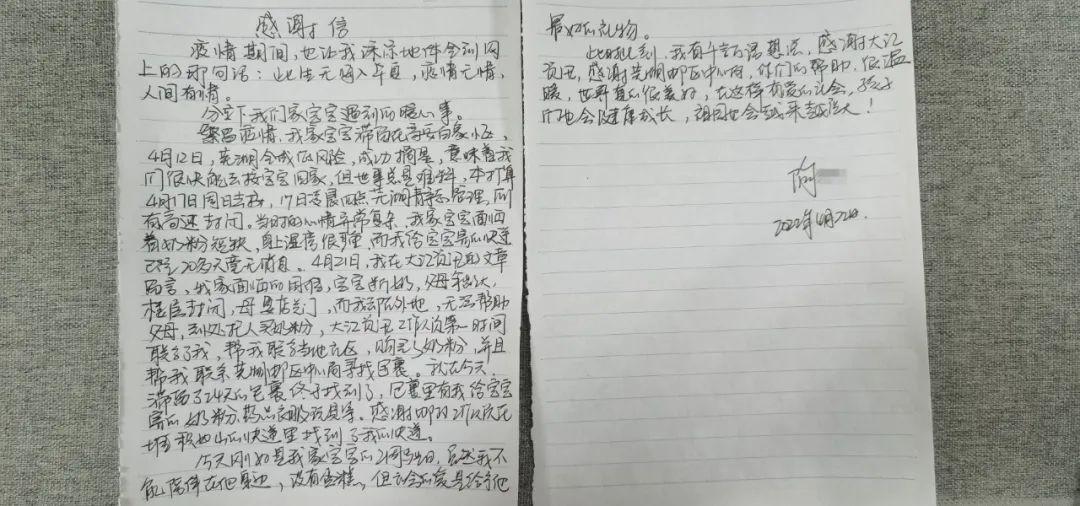 感谢信
疫情期间，也让我深深地体会到网
上的那句话：此生无悔入华夏，疫情无情，
人间有情。
分享下我们家宝宝遇到的暖心事。
宝宝滞留在
4月12日，芜湖全域低风险，成功摘星，意味着我
们很快能去接宝宝回家，但世事总是难料，本打算
4月17日周日去接，17日凌晨两点芜湖静态管理，所
有高速封闭。当时的心情异常复杂，我家宝宝面临
着奶粉短缺，身上湿疹很严重，而我给宝宝寄的快递
已经20多天毫无消息。4月21日，我在大江资讯的文章
留言，我家面临的困信，宝宝断奶，父母年纪大，
楼层封闭，母婴店关门，而我却在外地，无法帮助
父母，到处托人买奶粉，大江资讯工作人员第一时间
联系了我，帮我联系当地社区，购买了奶粉，并且
帮我联系芜湖邮区中心局寻找包裹。就在今天，
滞留了24天的包裹终于找到了，包裹里有我给宝宝
寄的奶粉、药品衣服玩具等。感谢邮政工作人员在
堆积如山的快递里找到了我的快递。
今天刚好是我家宝宝的2周岁生日，虽然我不
能陪伴在他身边，没有蛋糕，但社会的爱是给予他
最好的礼物。
此时此刻，我有千言万语想说，感谢大江
资讯，感谢芜湖邮区中心局，你们的帮助，很温
暖，世界真的很美好，在这样有爱的社会，孩子
们也会健康成长，祖国也会越来越强大！
2022年4月22日.